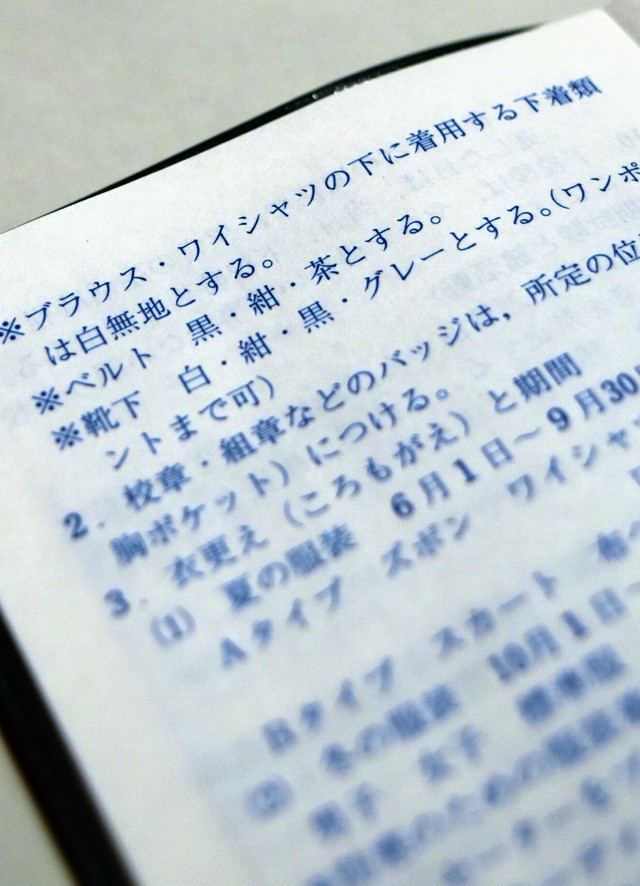 ※ブラウス・ワイシャツの下に着用する下着類
は白無地とする。
※ベルト　黒・紺・茶とする。
※靴下　白・紺・黒・グレーとする。(ワンポ
ントまで可)
2. 校章・組章などのバッジは，所定の位
胸ポケット）につける。
3. 衣更え（ころもがえ）と期間
(1) 夏の服装　6月1日～9月30
Aタイプ　ズボン　ワイシャツ
Bタイプ　スカート
(2) 冬の服装　10月1日～
男子　女子　標準服